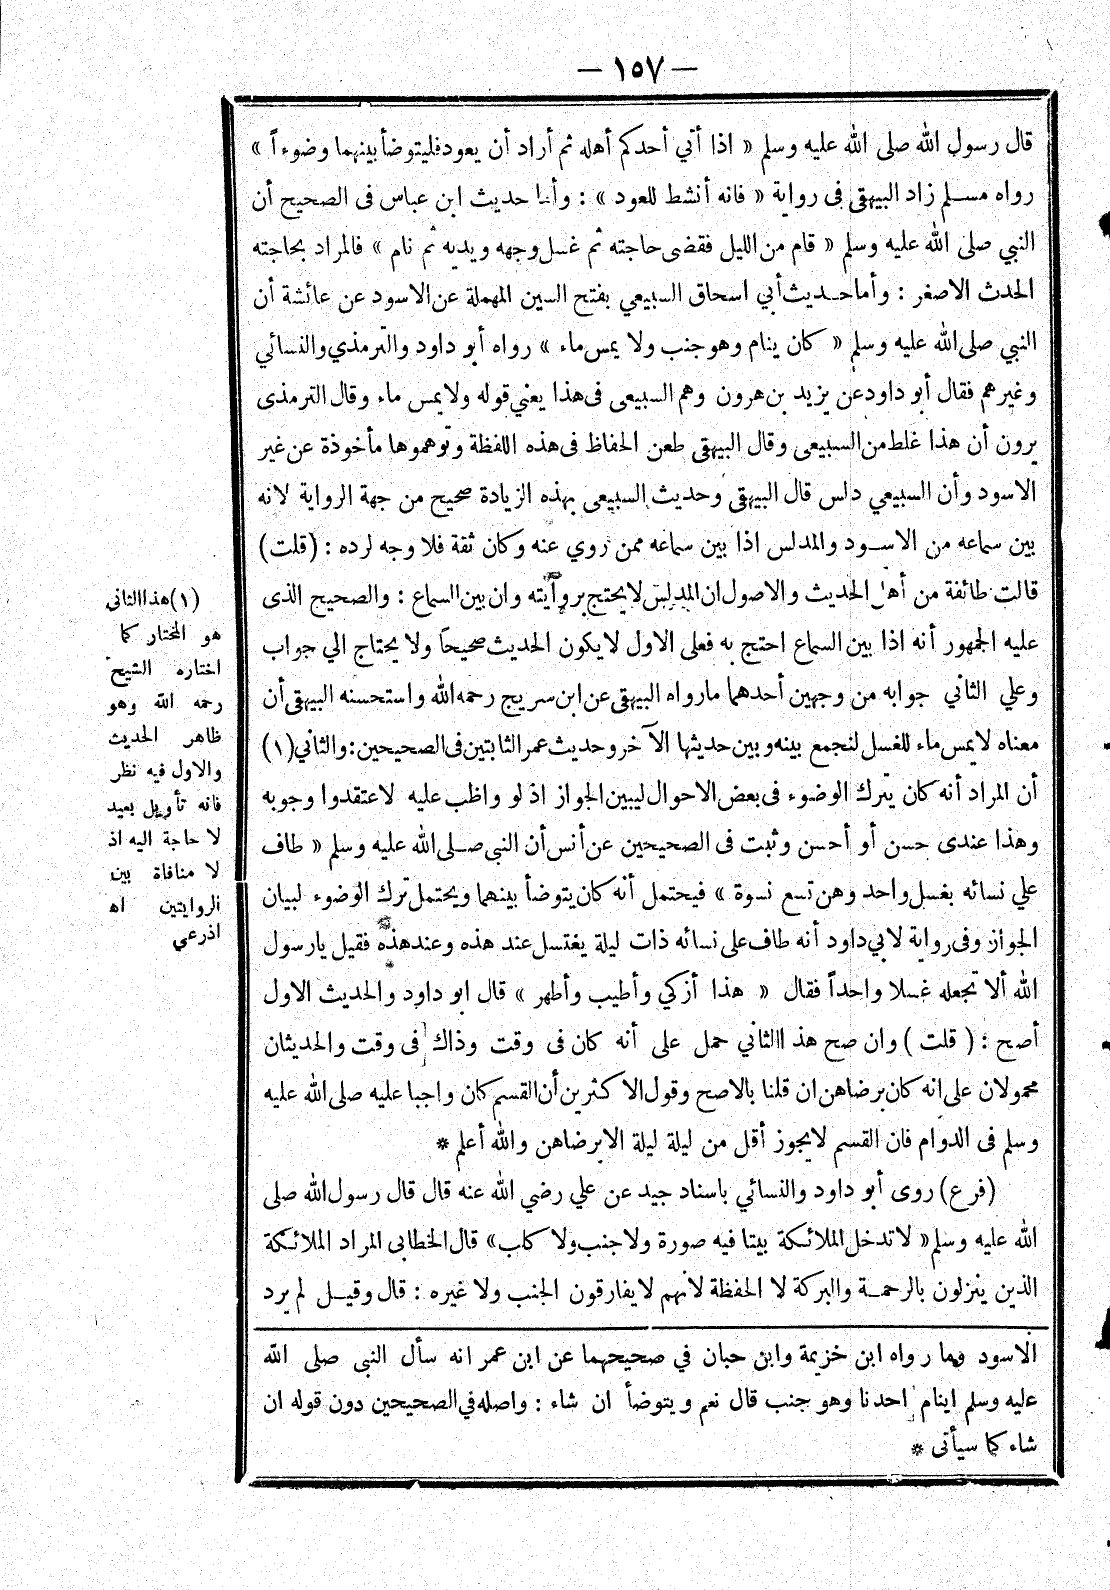 — ١٥٧ —
قال رسول الله صلى الله عليه وسلم « اذا أتي أحدكم أهله ثم أراد أن يعود فليتوضأ بينهما وضوءاً »
رواه مسلم زاد البيهقى فى رواية « فانه أنشط للعود » : وأما حديث ابن عباس فى الصحيح أن
النبي صلى الله عليه وسلم « قام من الليل فقضى حاجته ثم غسل وجهه ويديه ثم نام » فالمراد بحاجته
الحدث الاصغر : وأما حديث أبي اسحاق السبيعي بفتح السين المهملة عن الاسود عن عائشة أن
النبي صلى الله عليه وسلم « كان ينام وهو جنب ولا يمس ماء » رواه أبو داود والترمذي والنسائي
وغيرهم فقال أبو داود عن يزيد بن هرون وهم السبيعى فى هذا يعني قوله ولا يمس ماء وقال الترمذى
يرون أن هذا غلط من السبيعى وقال البيهقى طعن الحفاظ فى هذه اللفظة وتوهموها مأخوذة عن غير
الاسود وأن السبيعي دلس قال البيهقى وحديث السبيعى بهذه الزيادة صحيح من جهة الرواية لانه
بين سماعه من الاسود والمدلس اذا بين سماعه ممن روي عنه وكان ثقة فلا وجه لرده : (قلت)
قالت طائفة من أهل الحديث والاصول ان المدلس لا يحتج بروايته وان بين السماع : والصحيح الذى
عليه الجمهور أنه اذا بين السماع احتج به فعلى الاول لا يكون الحديث صحيحا ولا يحتاج الي جواب
وعلي الثاني جوابه من وجهين أحدهما ما رواه البيهقى عن ابن سريج رحمه الله واستحسنه البيهقى أن
معناه لا يمس ماء للغسل لنجمع بينه وبين حديثها الآخر وحديث عمر الثابتين فى الصحيحين : والثاني (١)
أن المراد أنه كان يترك الوضوء فى بعض الاحوال ليبين الجواز اذ لو واظب عليه لاعتقدوا وجوبه
وهذا عندى حسن أو أحسن وثبت فى الصحيحين عن أنس أن النبى صلى الله عليه وسلم « طاف
علي نسائه بغسل واحد وهن تسع نسوة » فيحتمل أنه كان يتوضأ بينهما ويحتمل ترك الوضوء لبيان
الجواز وفى رواية لابي داود أنه طاف على نسائه ذات ليلة يغتسل عند هذه وعند هذه فقيل يا رسول
الله ألا تجعله غسلا واحداً فقال « هذا أزكي وأطيب وأطهر » قال ابو داود والحديث الاول
أصح : ( قلت ) وان صح هذا الثاني حمل على أنه كان فى وقت وذاك فى وقت والحديثان
محمولان على انه كان برضاهن ان قلنا بالاصح وقول الاكثرين أن القسم كان واجبا عليه صلى الله عليه
وسلم فى الدوام فان القسم لا يجوز أقل من ليلة ليلة الا برضاهن والله أعلم *
(فرع) روى أبو داود والنسائي باسناد جيد عن علي رضي الله عنه قال قال رسول الله صلى
الله عليه وسلم « لا تدخل الملائكة بيتا فيه صورة ولا جنب ولا كلب » قال الخطابى المراد الملائكة
الذين ينزلون بالرحمة والبركة لا الحفظة لانهم لا يفارقون الجنب ولا غيره : قال وقيل لم يرد
(١) هذا الثاني
هو المختار كما
اختاره الشيخ
رحمه الله وهو
ظاهر الحديث
والاول فيه نظر
فانه تأويل بعيد
لا حاجة اليه اذ
لا منافاة بين
الروايتين اه
اذرعي
الاسود وبما رواه ابن خزيمة وابن حبان في صحيحهما عن ابن عمر انه سأل النبى صلى الله
عليه وسلم اينام احدنا وهو جنب قال نعم ويتوضأ ان شاء : واصله في الصحيحين دون قوله ان
شاء كما سيأتى *